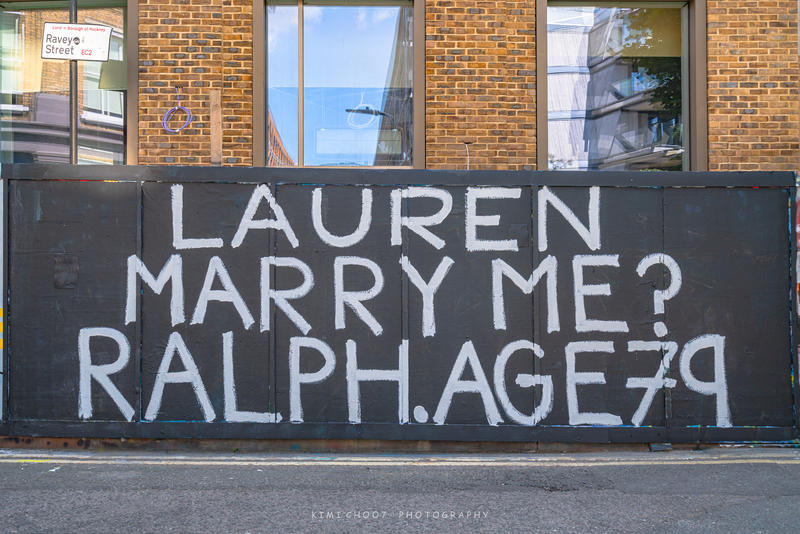 London Borough of Hackney
Ravey
Street EC2
LAUREN
MARRY ME?
RALPH.AGE79
KIMICHOO7 PHOTOGRAPHY